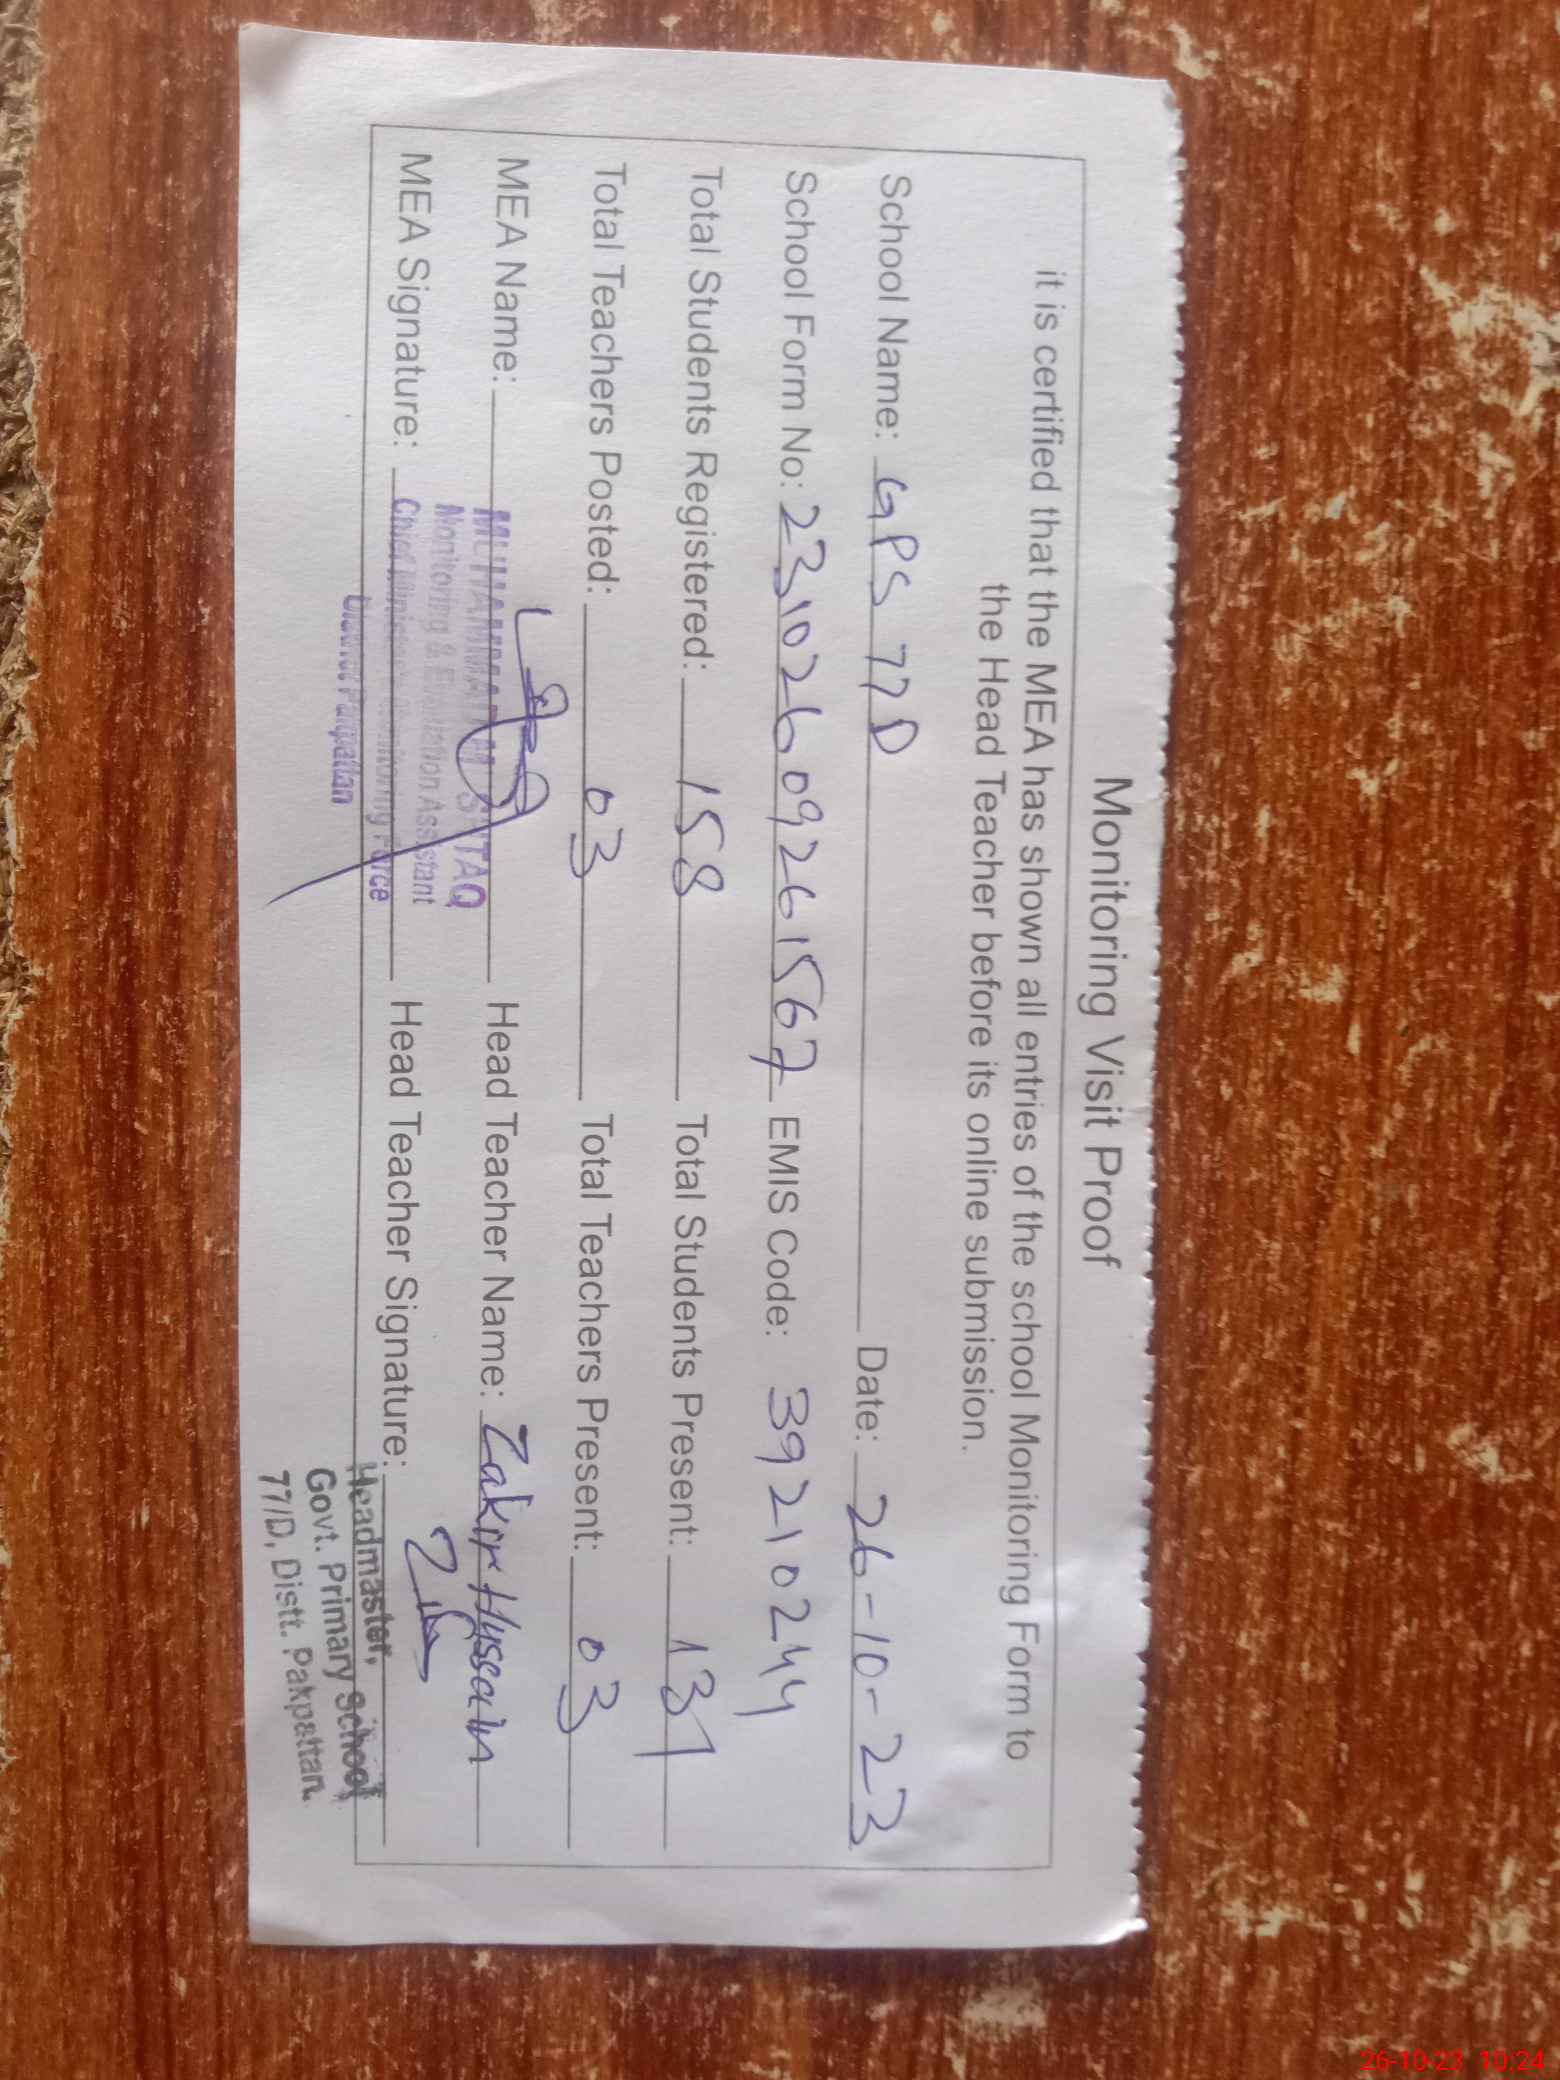 Monitoring Visit Proof
it is certified that the MEA has shown all entries of the school Monitoring Form to
the Head Teacher before its online submission.
School Name: GPS 77D Date: 26-10-23
School Form No: 23102609261567 EMIS Code: 39210244
Total Students Registered: 158 Total Students Present: 137
Total Teachers Posted: 03 Total Teachers Present: 03
MEA Name: Head Teacher Name: Zakir Hussain
MUHAMMAD MUSHTAQ
Monitoring & Evaluation Assistant
MEA Signature: Head Teacher Signature:
Chief Minister's Monitoring Force
District Pakpattan
Headmaster,
Govt. Primary School
77/D, Distt. Pakpattan.
26-10-23 10:24